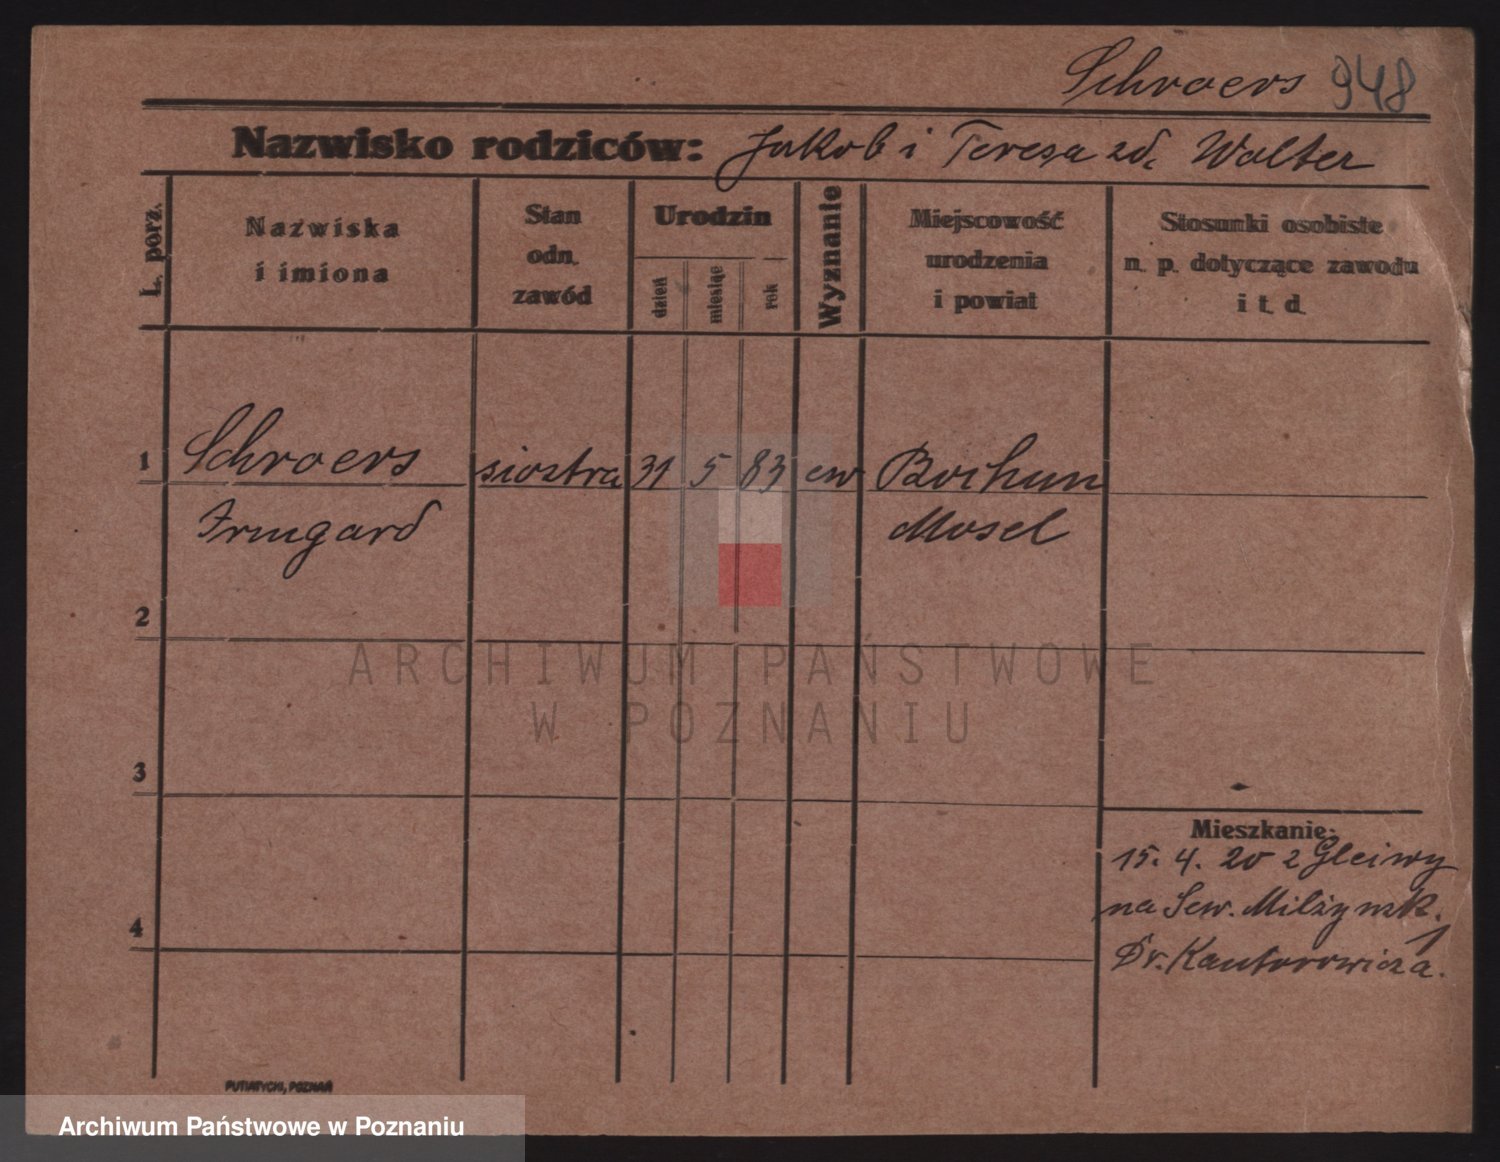 Schroers 948
Nazwisko rodziców: Jakob i Teresa zd. Walter
L. porz.
Nazwiska
i imiona
Stan
odn.
zawód
Urodzin
dzień
miesiąc
rok
Wyznanie
Miejscowość
urodzenia
i powiat
Stosunki osobiste
n. p. dotyczące zawodu
i t. d.
1 Schroers siostra 31 5 83 ew Bochum
Irmgard Mosel
2
3
4
Mieszkanie:
15. 4. 20 z
na Sew. Milżyńsk. 1
Dr. Kantorowicza.
PUTIATYCKI, POZNAŃ
ARCHIWUM PAŃSTWOWE
W POZNANIU
Archiwum Państwowe w Poznaniu